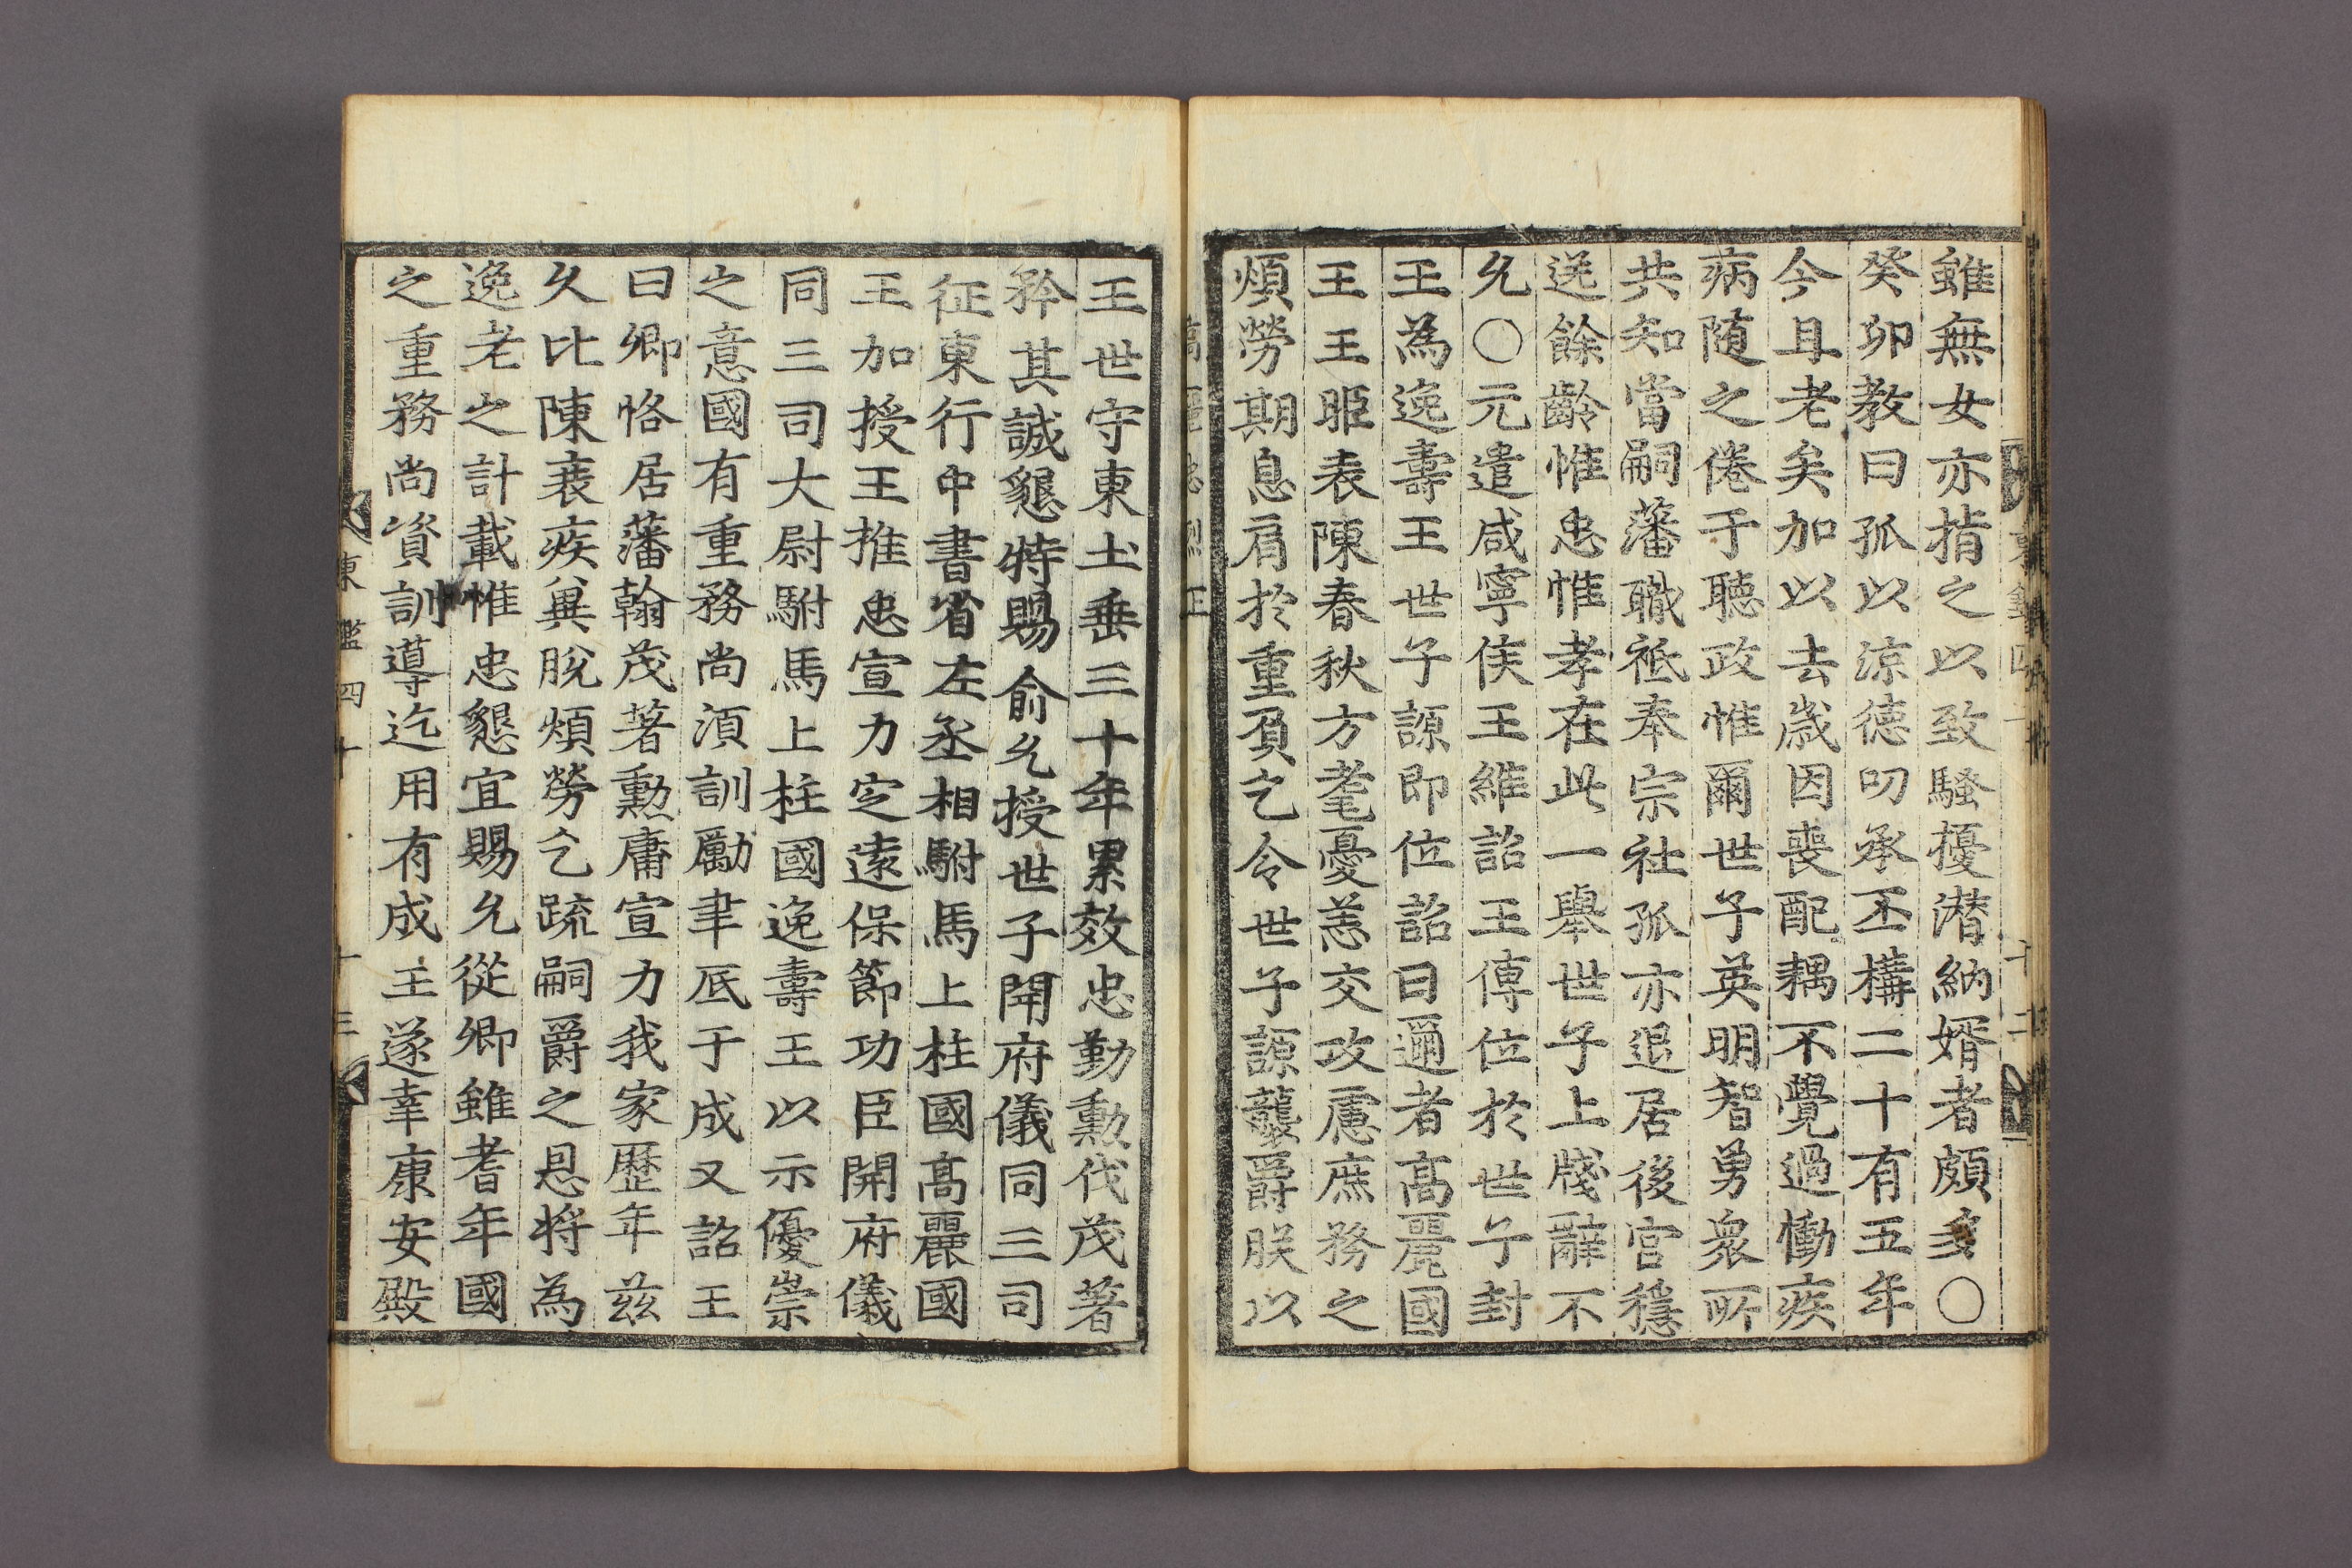 雖無女亦指之以致騷擾潜納婿者頗多〇
癸卯教曰孤以涼德叨承丕構二十有五年
今且老矣加以去歲因喪配耦不覺過慟疾
病随之倦于聽政惟爾世子英明智勇衆所
共知當嗣藩職祗奉宗社孤亦退居後宮穩
送餘齡惟忠惟孝在此一舉世子上牋辭不
允〇元遣咸寧侯王維詔王傳位於世子封
王為逸壽王世子謜即位詔曰邇者高麗國
王王昛表陳春秋方耄憂恙交攻慮庶務之
煩勞期息肩於重負乞令世子謜襲爵朕以
王世守東土垂三十年累效忠勤勲伐茂著
矜其誠懇特賜俞允授世子開府儀同三司
征東行中書省左丞相駙馬上柱國高麗國
王加授王推忠宣力定遠保節功臣開府儀
同三司大尉駙馬上柱國逸壽王以示優崇
之意國有重務尚湏訓勵聿底于成又詔王
曰卿恪居藩翰茂著勲庸宣力我家歷年茲
久比陳衰疾兾脫煩勞乞疏嗣爵之恩將為
逸老之計載惟忠懇宜賜允從卿雖耆年國
之重務尚資訓導迄用有成王遂幸康安殿
東鑑四十 十三